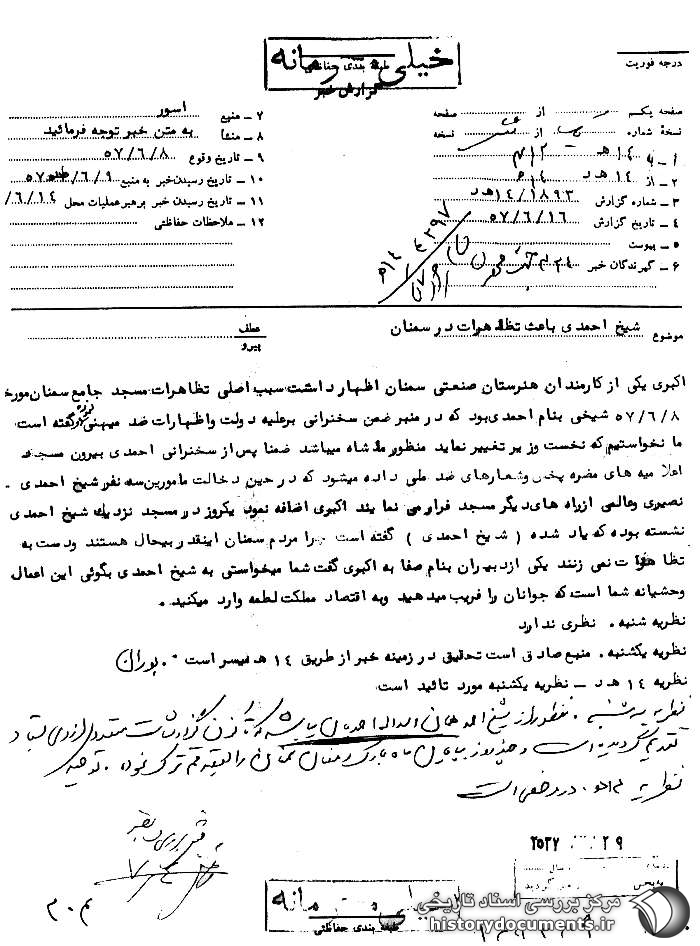 خیلی محرمانه
طبقه بندی حفاظتی
گزارش خبر
درجه فوریت
صفحه یکم از صفحه
نسخهٔ شماره از نسخه
۱ـ به
۲ـ از ۱۴ هـ د
۳ـ شماره گزارش ۱۴/۱۸۹۳ هـ د
۴ـ تاریخ گزارش ۵۷/۶/۱۶
۵ـ پیوست
۶ـ گیرندگان خبر
۷ـ منبع اسور
۸ـ منشأ به متن خبر توجه فرمائید
۹ـ تاریخ وقوع ۵۷/۶/۸
۱۰ـ تاریخ رسیدن خبر به منبع ۵۷/۶/۹
۱۱ـ تاریخ رسیدن خبر برهبر عملیات محل /۶/۱۴
۱۲ـ ملاحظات حفاظتی
موضوع شیخ احمدی باعث تظاهرات در سمنان
عطف
پیرو
اکبری یکی از کارمندان هنرستان صنعتی سمنان اظهار داشت سبب اصلی تظاهرات مسجد جامع سمنان مورخ
۵۷/۶/۸ شیخی بنام احمدی بود که در منبر ضمن سخنرانی برعلیه دولت و اظهارات ضد میهنی گفته است
ما نخواستیم که نخست وزیر تغییر نماید منظور ما شاه میباشد ضمنا پس از سخنرانی احمدی بیرون مسجد
اعلامیه های مضره پخش وشعارهای ضد ملی داده میشود که در حین دخالت مامورین سه نفر شیخ احمدی ـ
نصیری وعالمی از راه های دیگر مسجد فرار می نمایند اکبری اضافه نمود یکروز در مسجد نزدیک شیخ احمدی
نشسته بوده که یاد شده ( شیخ احمدی ) گفته است چرا مردم سمنان اینقدر بیحال هستند ودست به
تظاهرات نمی زنند یکی از دبیران بنام صفا به اکبری گفت شما میخواستی به شیخ احمدی بگوئی این اعمال
وحشیانه شما است که جوانان را فریب میدهید وبه اقتصاد مملکت لطمه وارد میکنید ۰
نظریه شنبه ۰ نظری ندارد
نظریه یکشنبه ۰ منبع صادق است تحقیق در زمینه خبر از طریق ۱۴ هـ میسر است ۰ پوران
نظریه ۱۴ هـ د ـ نظریه یکشنبه مورد تائید است
نظریه سه شنبه ۰ منظور از شیخ احمدی همان اسداله احمدیان میباشد که تاکنون گزارشات متعدد
تقدیم گردیده است و چند روز پایان ماه مبارک رمضان سمنان را به قم ترک نموده ۰
۲۵۳۷ ۲۹
خیلی محرمانه
طبقه بندی حفاظتی
مرکز بررسی اسناد تاریخی
historydocuments.ir